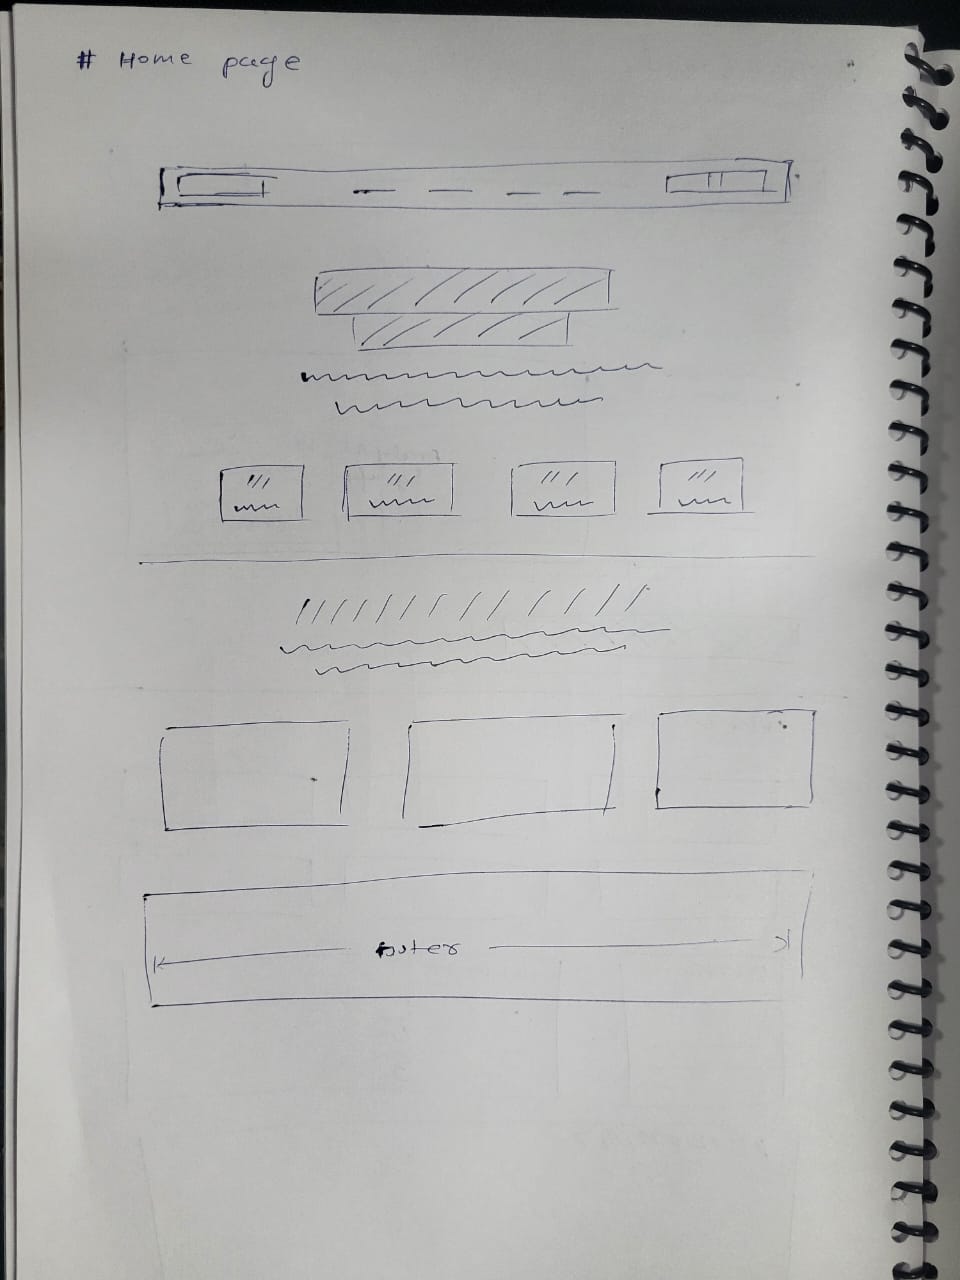 # Home page
footer